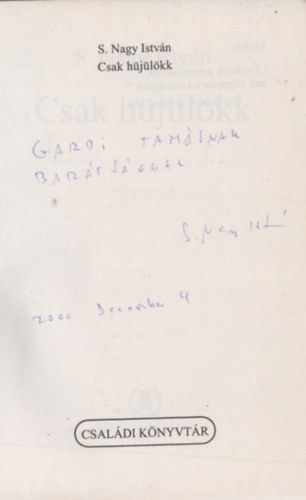 S. Nagy István
Csak hüjülökk
GARDI TAMÁSNAK
BARÁTSÁGGAL
S. Nagy István
2000 December 4
CSALÁDI KÖNYVTÁR